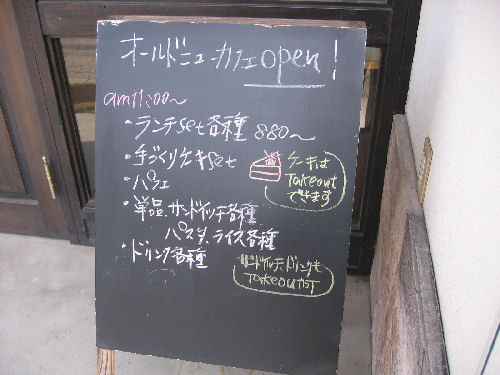 オールドニューカフェ open!
am11:00〜
・ランチset各種 880〜
・手づくりケーキset
ケーキは
Takeout
できます
・パフェ
・単品、サンドイッチ各種
パスタ、ライス各種
・ドリンク各種
サンドイッチ、ドリンクも
Takeout可